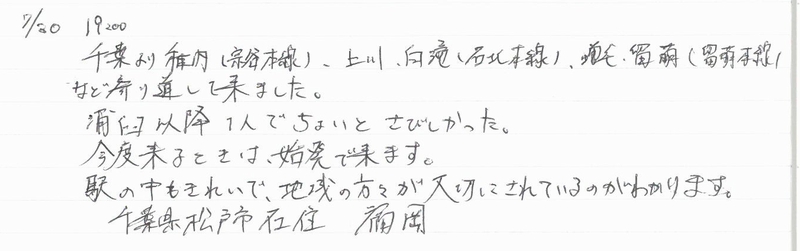 7/30 19200
千葉より稚内(宗谷本線)、上川、白滝(石北本線)、増毛・留萌(留萌本線)
など寄り道して来ました。
浦臼以降1人でちょいとさびしかった。
今度来るときは、始発で来ます。
駅の中もきれいで、地域の方々が大切にされているのがわかります。
千葉県松戸市在住 福岡